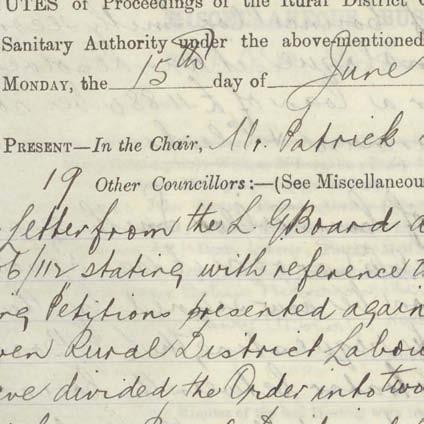 UTES of Proceedings of the Rural District
Sanitary Authority under the above-mentioned
MONDAY, the 15th day of June
PRESENT—In the Chair, Mr. Patrick
19 Other Councillors:—(See Miscellaneou
Letter from the L G Board a
6/112 stating with reference t
ng Petitions presented again
ven Rural District Labou
ve divided the Order into two